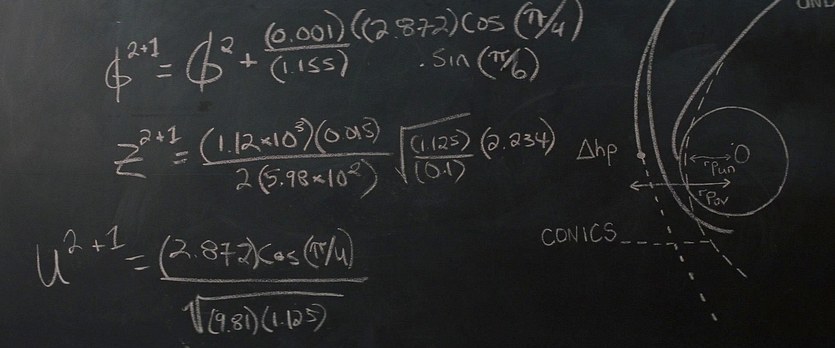 ϕ^{2+1} = ϕ^2 + \frac{(0.001)((2.872)Cos(π/4)}{(1.155)} · Sin(π/6)
Z^{2+1} = \frac{(1.12×10^3)(0.015)}{2(5.98×10^2)} \sqrt{\frac{(1.125)}{(0.1)}} (2.234)
U^{2+1} = \frac{(2.872)Cos(π/4)}{\sqrt{(9.81)(1.125)}}
Δhp
O
rpun
rpov
CONICS